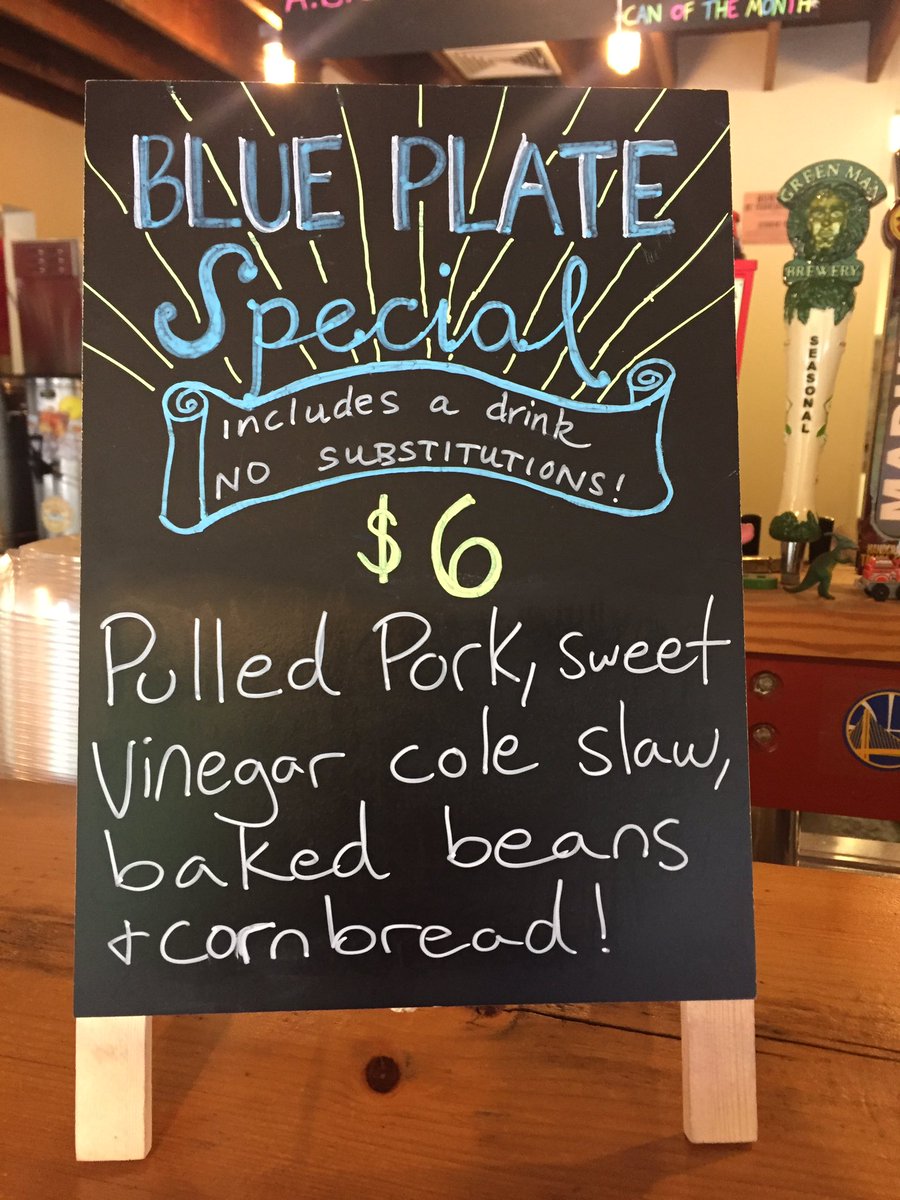 CAN OF THE MONTH
BLUE PLATE
Special
includes a drink
NO SUBSTITUTIONS!
$6
Pulled Pork, sweet
vinegar cole slaw,
baked beans
+ cornbread!
GREEN MAN
BREWERY
SEASONAL